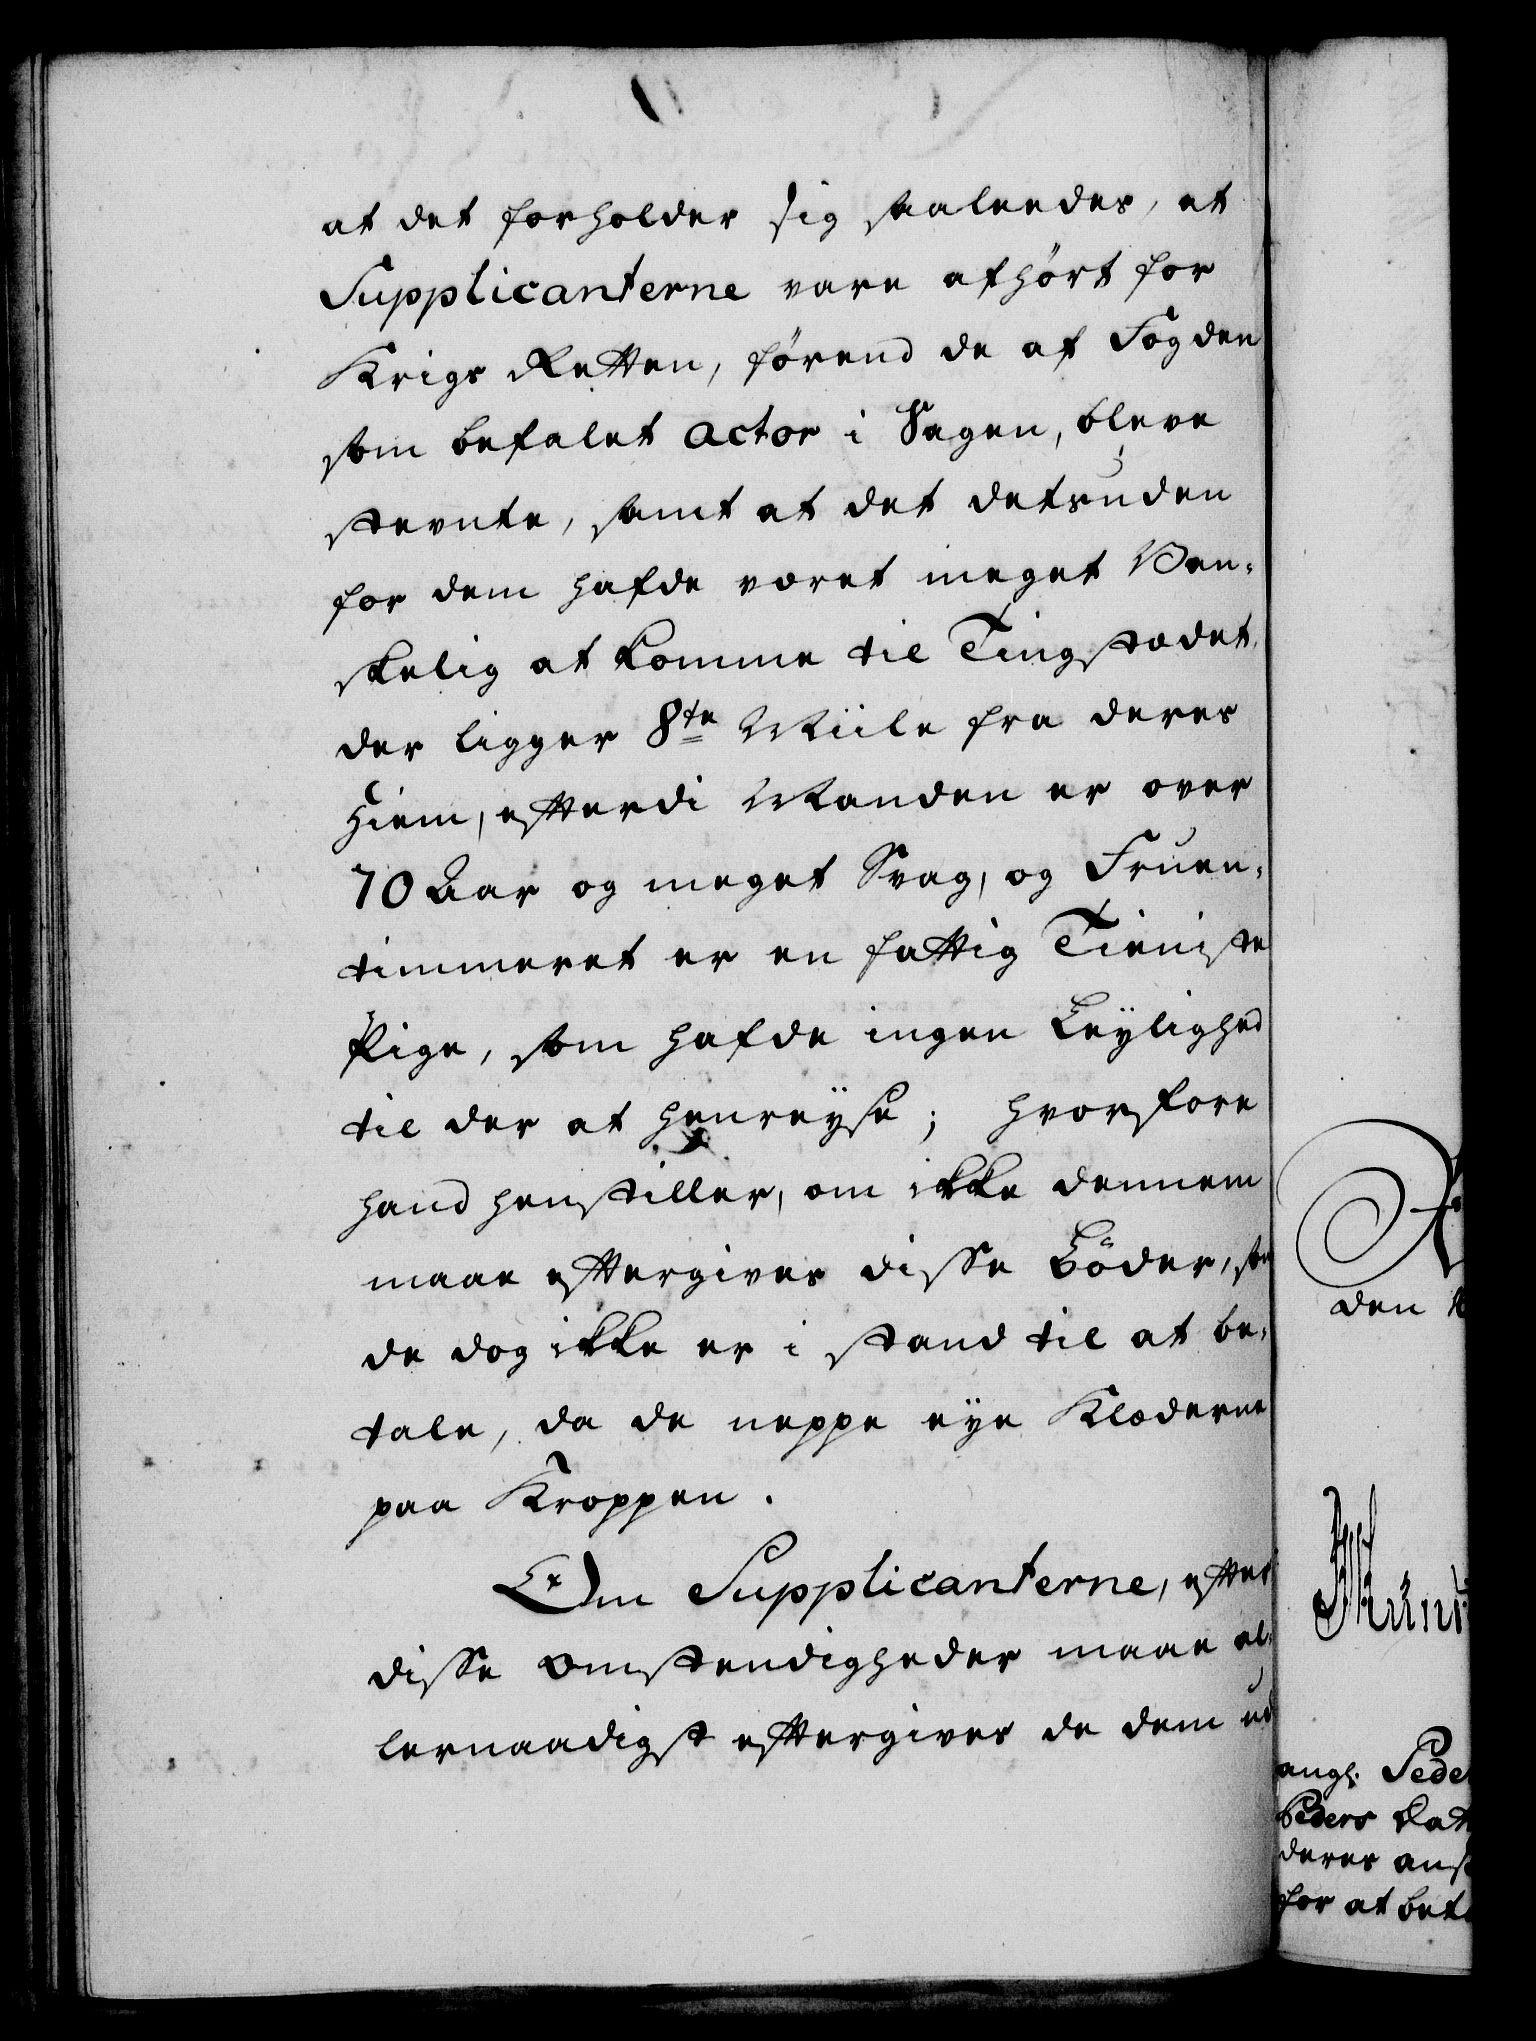 at det forholder sig saaleedes, at
Supplicanterne vare afhørt for
Krigs Retten, førend de af Fogden
som befalet actor i Sagen, bleve
stevnte, samt at det detsuden
for dem hafde været meget Van-
skelig at komme til Tingstædet,
der ligger 8te Miile fra deres
Hiem, efterdi Manden er over
70 Aar og meget Svag, og Fruen-
timmeret er en fattig Tieniste
Pige, som hafde ingen Leylighed
til der at henreyse; hvorfore
hand henstiller, om ikke dennem
maae eftergives disse Bøder, som
de dog ikke er i stand til at be-
tale, da de neppe eye Klæderne
paa Kroppen.
Om Supplicanterne, efter
disse Omstendigheder maae al-
lernaadigst eftergives de dem ud
den
angl. Peder
Peders Dat
deres
for at bet